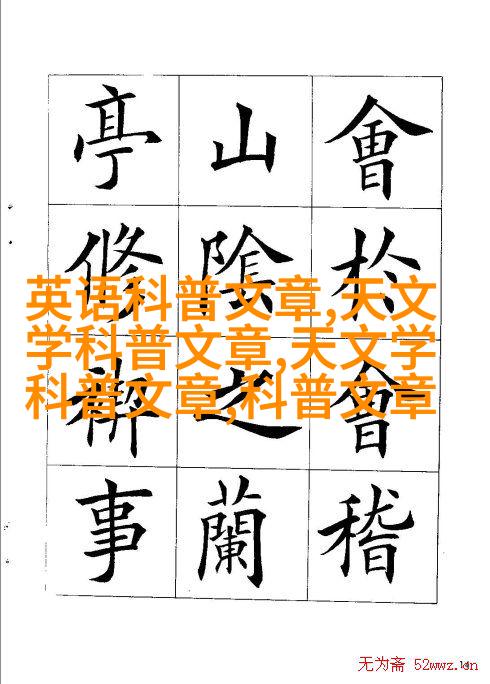 會於會稽
山陰之蘭
亭修禊事
英语科普文章,天文
学科普文章,天文学
科普文章,科普文章
无为斋 52wwz.cn